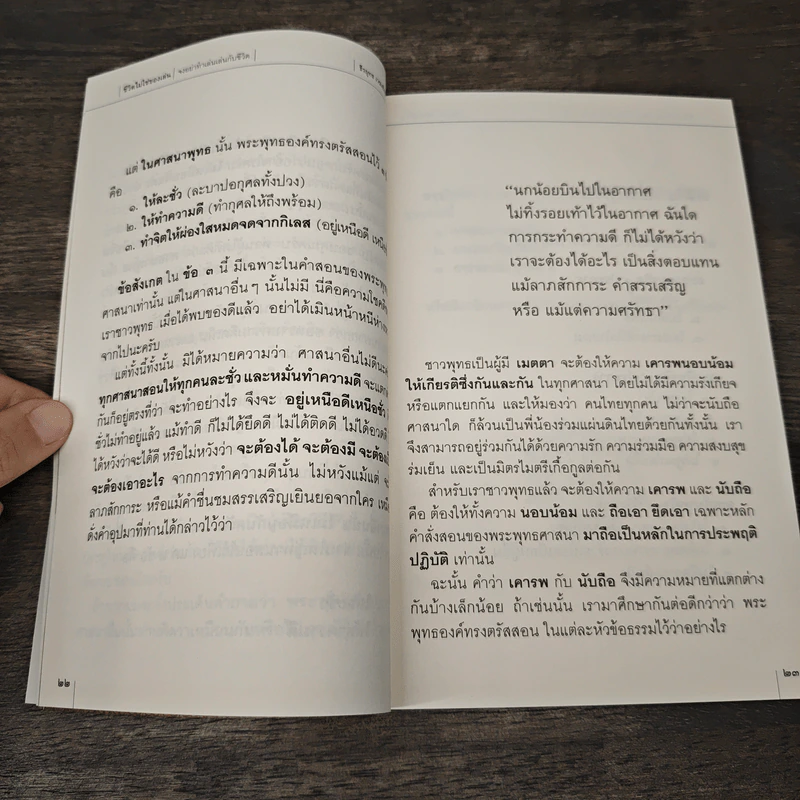 ชีวิตไม่ใช่ของเล่น | จงอย่าทำเล่นเล่นกับชีวิต
แต่ ในศาสนาพุทธ นั้น พระพุทธองค์ทรงตรัสสอนไว้ ๓
คือ
๑. ให้ละชั่ว (ละบาปอกุศลทั้งปวง)
๒. ให้ทำความดี (ทำกุศลให้ถึงพร้อม)
๓. ทำจิตให้ผ่องใสหมดจดจากกิเลส (อยู่เหนือดี เหนือ
ข้อสังเกต ใน ข้อ ๓ นี้ มีเฉพาะในคำสอนของพระพุทธ
ศาสนาเท่านั้น แต่ในศาสนาอื่นๆ นั้นไม่มี นี่คือความโชคดี
เราชาวพุทธ เมื่อได้พบของดีแล้ว อย่าได้เมินหน้าหนีห่าง
จากไปนะครับ
แต่ทั้งนี้ทั้งนั้น มิได้หมายความว่า ศาสนาอื่นไม่ดีนะ
ทุกศาสนาสอนให้ทุกคนละชั่ว และหมั่นทำความดี จะแตก
กันก็อยู่ตรงที่ว่า จะทำอย่างไร จึงจะ อยู่เหนือดีเหนือชั่ว
ชั่วไม่ทำอยู่แล้ว แม้ทำดี ก็ไม่ได้ยึดดี ไม่ได้ติดดี ไม่ได้อวดดี
ได้หวังว่าจะได้ดี หรือไม่หวังว่า จะต้องได้ จะต้องมี จะต้อง
จะต้องเอาอะไร จากการทำความดีนั้น ไม่หวังแม้แต่
ลาภสักการะ หรือแม้คำชื่นชมสรรเสริญเยินยอจากใคร
ดั่งคำอุปมาที่ท่านได้กล่าวไว้ว่า
๒๒
“นกน้อยบินไปในอากาศ
ไม่ทิ้งรอยเท้าไว้ในอากาศ ฉันใด
การกระทำความดี ก็ไม่ได้หวังว่า
เราจะต้องได้อะไร เป็นสิ่งตอบแทน
แม้ลาภสักการะ คำสรรเสริญ
หรือ แม้แต่ความศรัทธา”
ชาวพุทธเป็นผู้มี เมตตา จะต้องให้ความ เคารพนอบน้อม
ให้เกียรติซึ่งกันและกัน ในทุกศาสนา โดยไม่ได้มีความรังเกียจ
หรือแตกแยกกัน และให้มองว่า คนไทยทุกคน ไม่ว่าจะนับถือ
ศาสนาใด ก็ล้วนเป็นพี่น้องร่วมแผ่นดินไทยด้วยกันทั้งนั้น เรา
จึงสามารถอยู่ร่วมกันได้ด้วยความรัก ความร่วมมือ ความสงบสุข
ร่มเย็น และเป็นมิตรไมตรีเกื้อกูลต่อกัน
สำหรับเราชาวพุทธแล้ว จะต้องให้ความ เคารพ และ นับถือ
คือ ต้องให้ทั้งความ นอบน้อม และ ถือเอา ยึดเอา เฉพาะหลัก
คำสั่งสอนของพระพุทธศาสนา มาถือเป็นหลักในการประพฤติ
ปฏิบัติ เท่านั้น
ฉะนั้น คำว่า เคารพ กับ นับถือ จึงมีความหมายที่แตกต่าง
กันบ้างเล็กน้อย ถ้าเช่นนั้น เรามาศึกษากันต่อดีกว่าว่า พระ
พุทธองค์ทรงตรัสสอน ในแต่ละหัวข้อธรรมไว้ว่าอย่างไร
๒๓